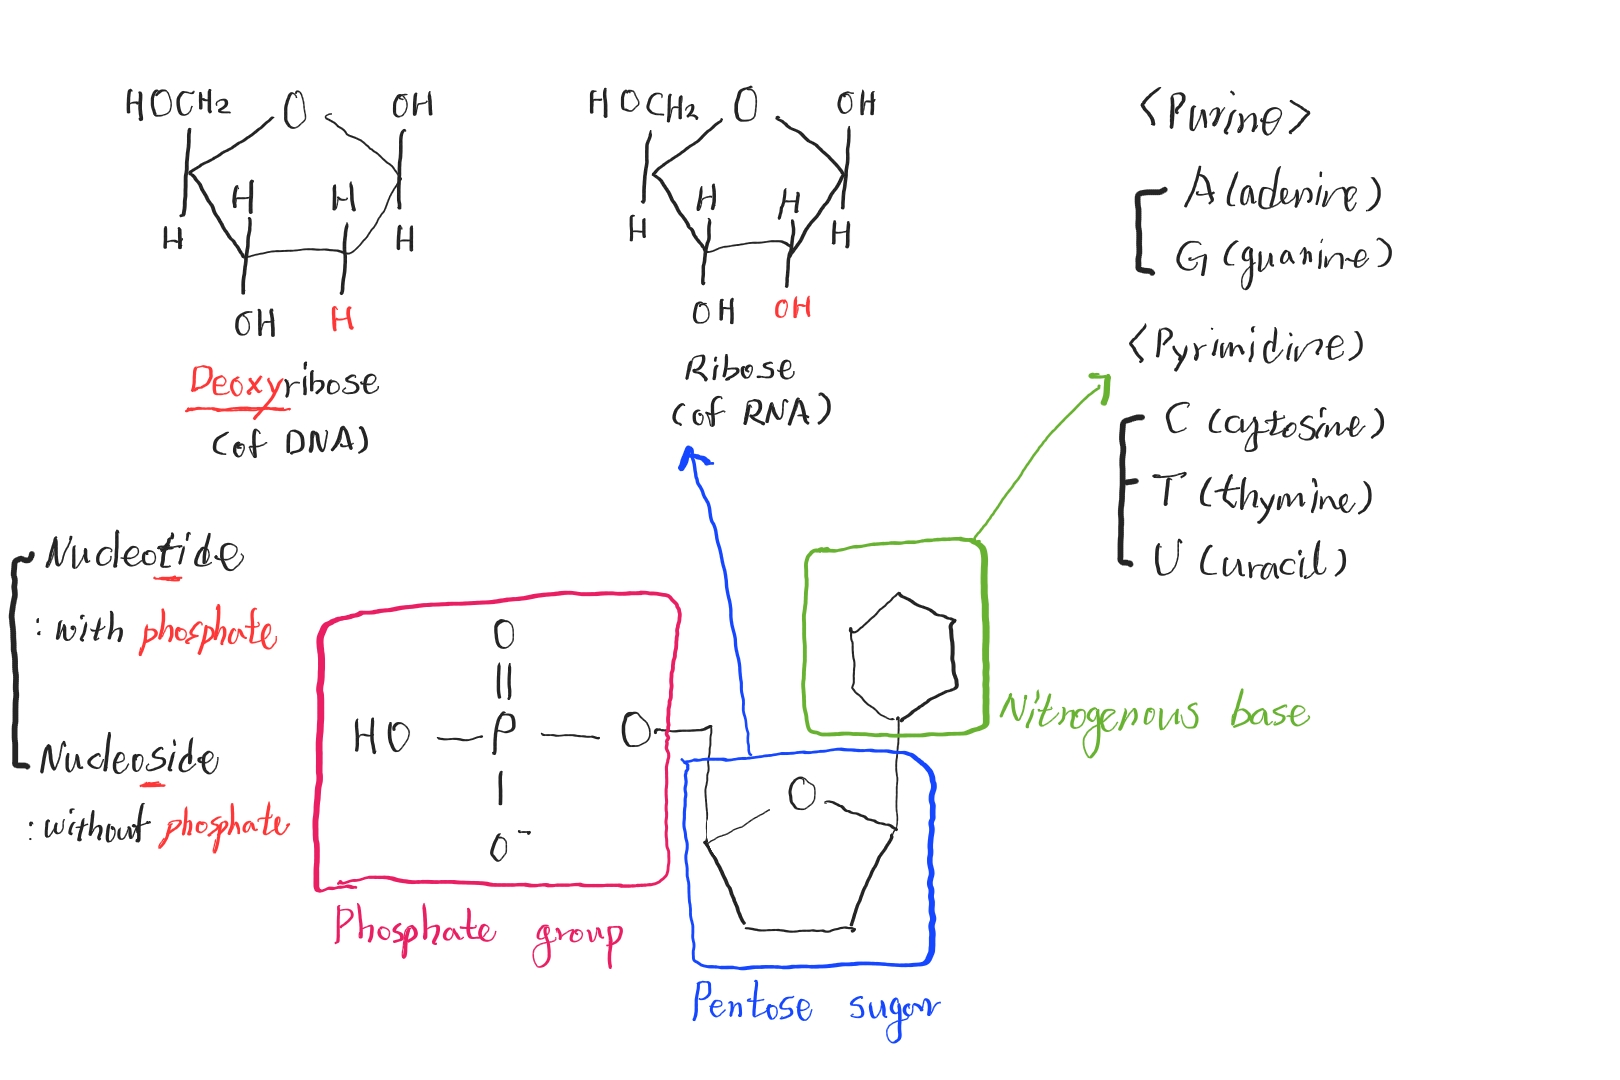 HOCH2 O OH
H H
H H
OH H
Deoxyribose
(of DNA)
HOCH2 O OH
H H
H H
OH OH
Ribose
(of RNA)
<Purine>
A (adenine)
G (guanine)
<Pyrimidine>
C (cytosine)
T (thymine)
U (uracil)
Nucleotide
: with phosphate
Nucleoside
: without phosphate
O
HO — P — O
O⁻
Phosphate group
O
Pentose sugar
Nitrogenous base